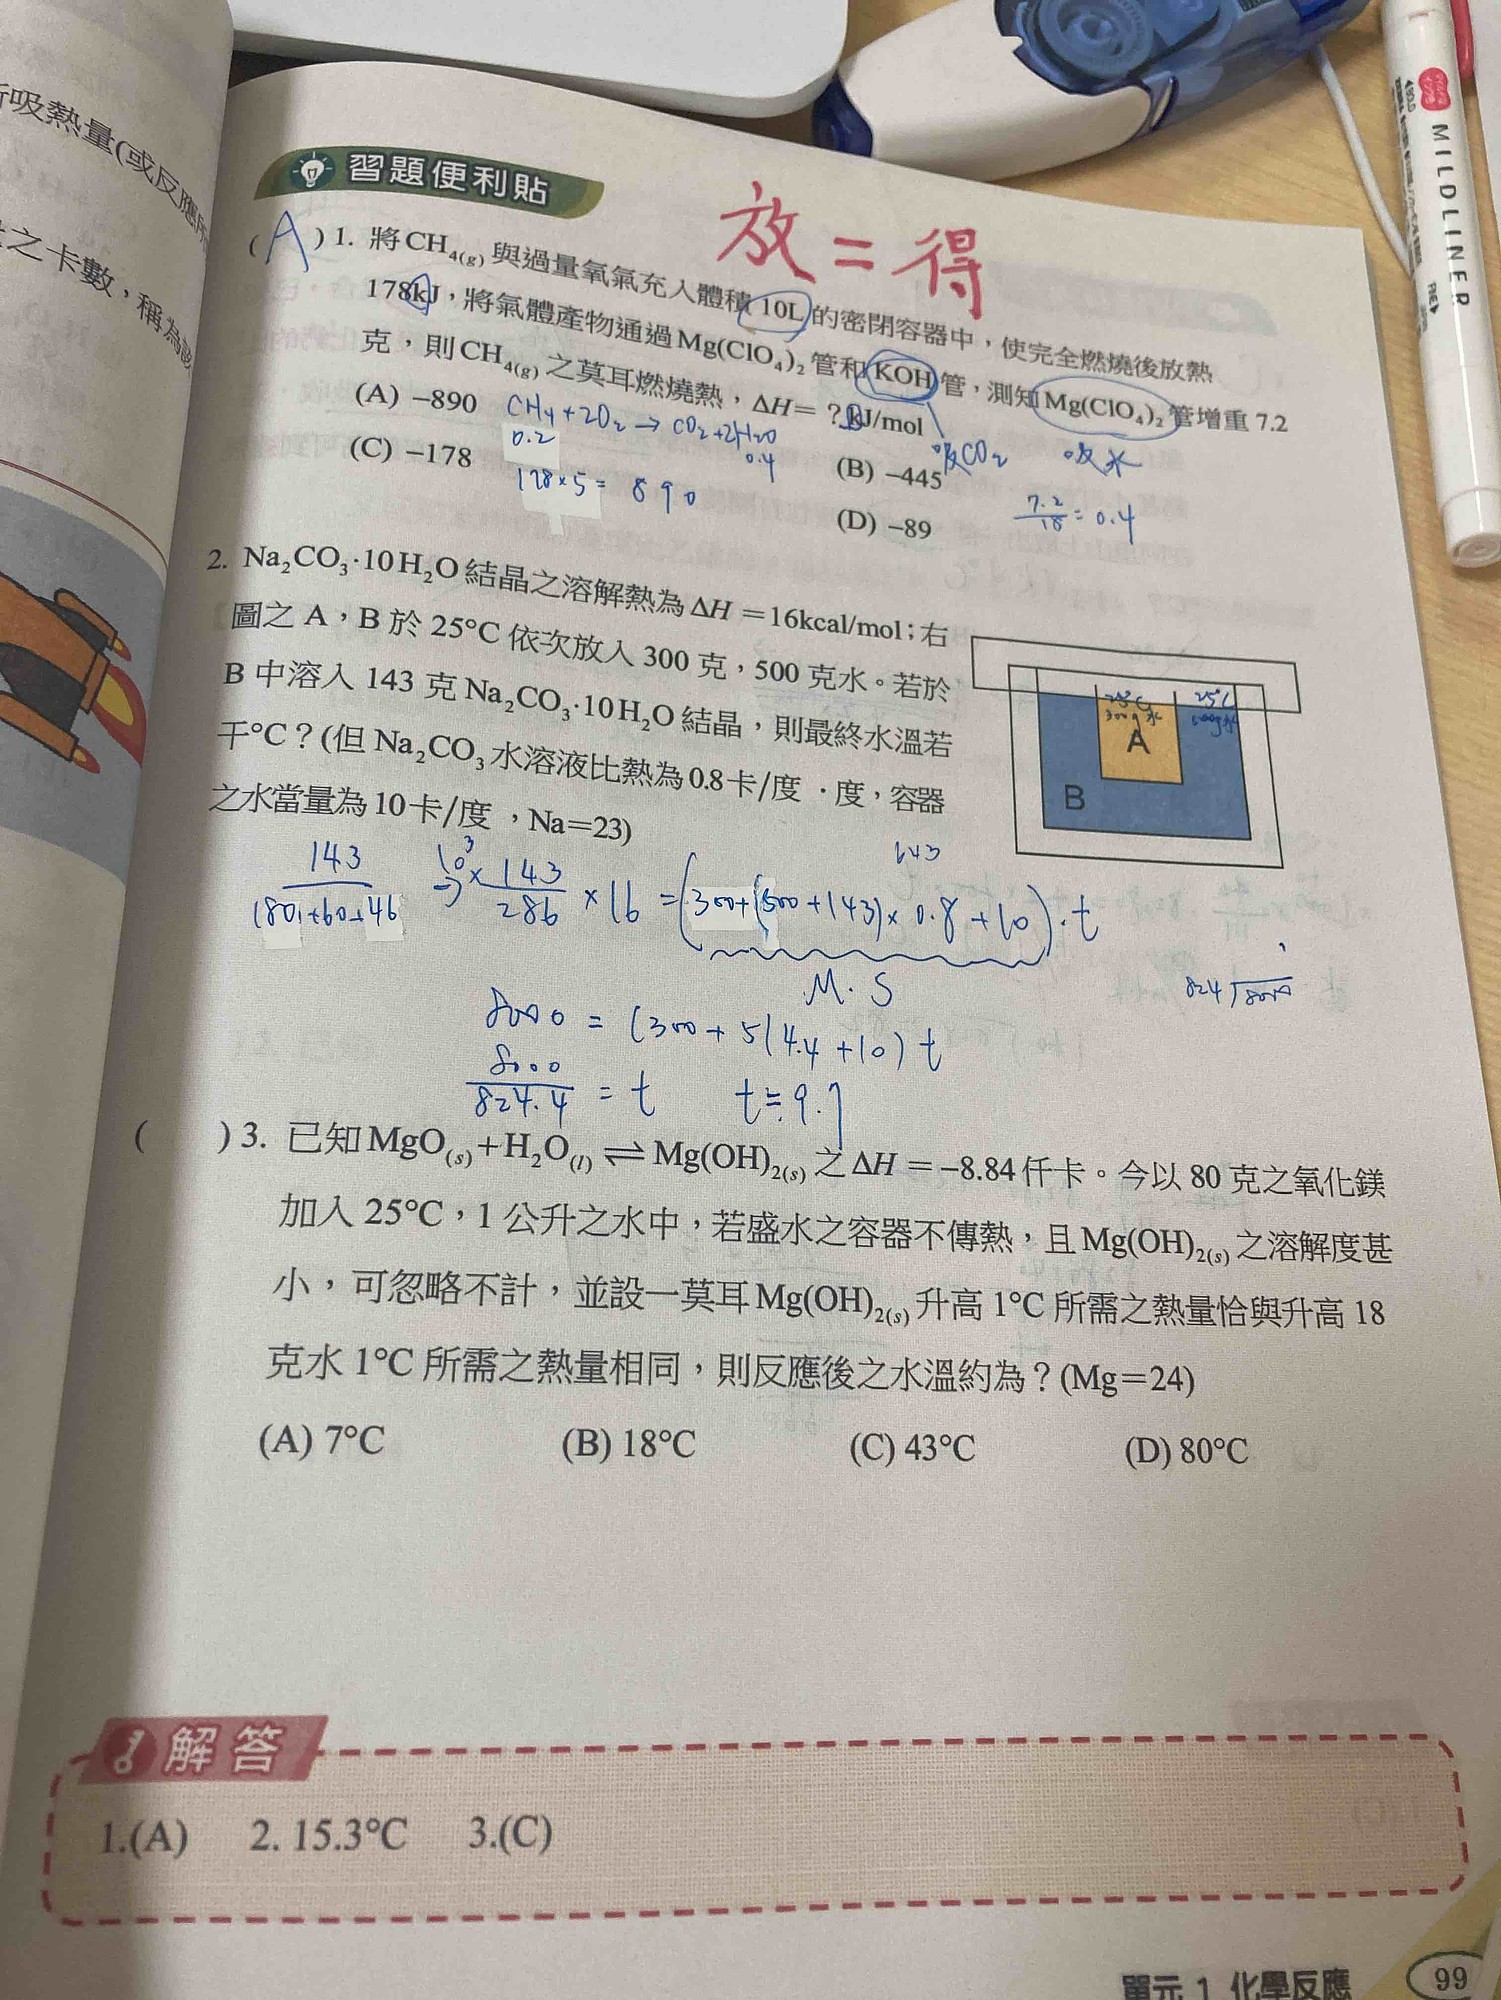 所吸熱量(或反應所
之卡數，稱為該
習題便利貼
放=得
(A)1. 將CH₄₍g₎與過量氧氣充入體積10L的密閉容器中，使完全燃燒後放熱
178kJ，將氣體產物通過Mg(ClO₄)₂管和KOH管，測知Mg(ClO₄)₂管增重7.2
克，則CH₄₍g₎之莫耳燃燒熱，ΔH=？kJ/mol
吸CO₂ 吸水
(A) −890
CH₄+2O₂→CO₂+2H₂O
0.2 0.4
(B) −445
7.2/18=0.4
(C) −178
178×5=890
(D) −89
2. Na₂CO₃·10H₂O結晶之溶解熱為ΔH=16kcal/mol；右
圖之A，B於25°C依次放入300克，500克水。若於
B中溶入143克Na₂CO₃·10H₂O結晶，則最終水溫若
干°C？(但Na₂CO₃水溶液比熱為0.8卡/度·度，容器
之水當量為10卡/度，Na=23)
25°C 25°C
300g水 500g水
A
B
643
143/(180+60+46) ⇒ 10³×143/286×16=(300+(500+143)×0.8+10)·t
M·S
8000=(300+514.4+10)t
824⟌8000
8000/824.4=t t≒9.7
( )3. 已知MgO₍s₎+H₂O₍l₎⇌Mg(OH)₂₍s₎之ΔH=−8.84仟卡。今以80克之氧化鎂
加入25°C，1公升之水中，若盛水之容器不傳熱，且Mg(OH)₂₍s₎之溶解度甚
小，可忽略不計，並設一莫耳Mg(OH)₂₍s₎升高1°C所需之熱量恰與升高18
克水1°C所需之熱量相同，則反應後之水溫約為？(Mg=24)
(A) 7°C (B) 18°C (C) 43°C (D) 80°C
解答
1.(A) 2. 15.3°C 3.(C)
單元 1 化學反應
99
MILDLINER